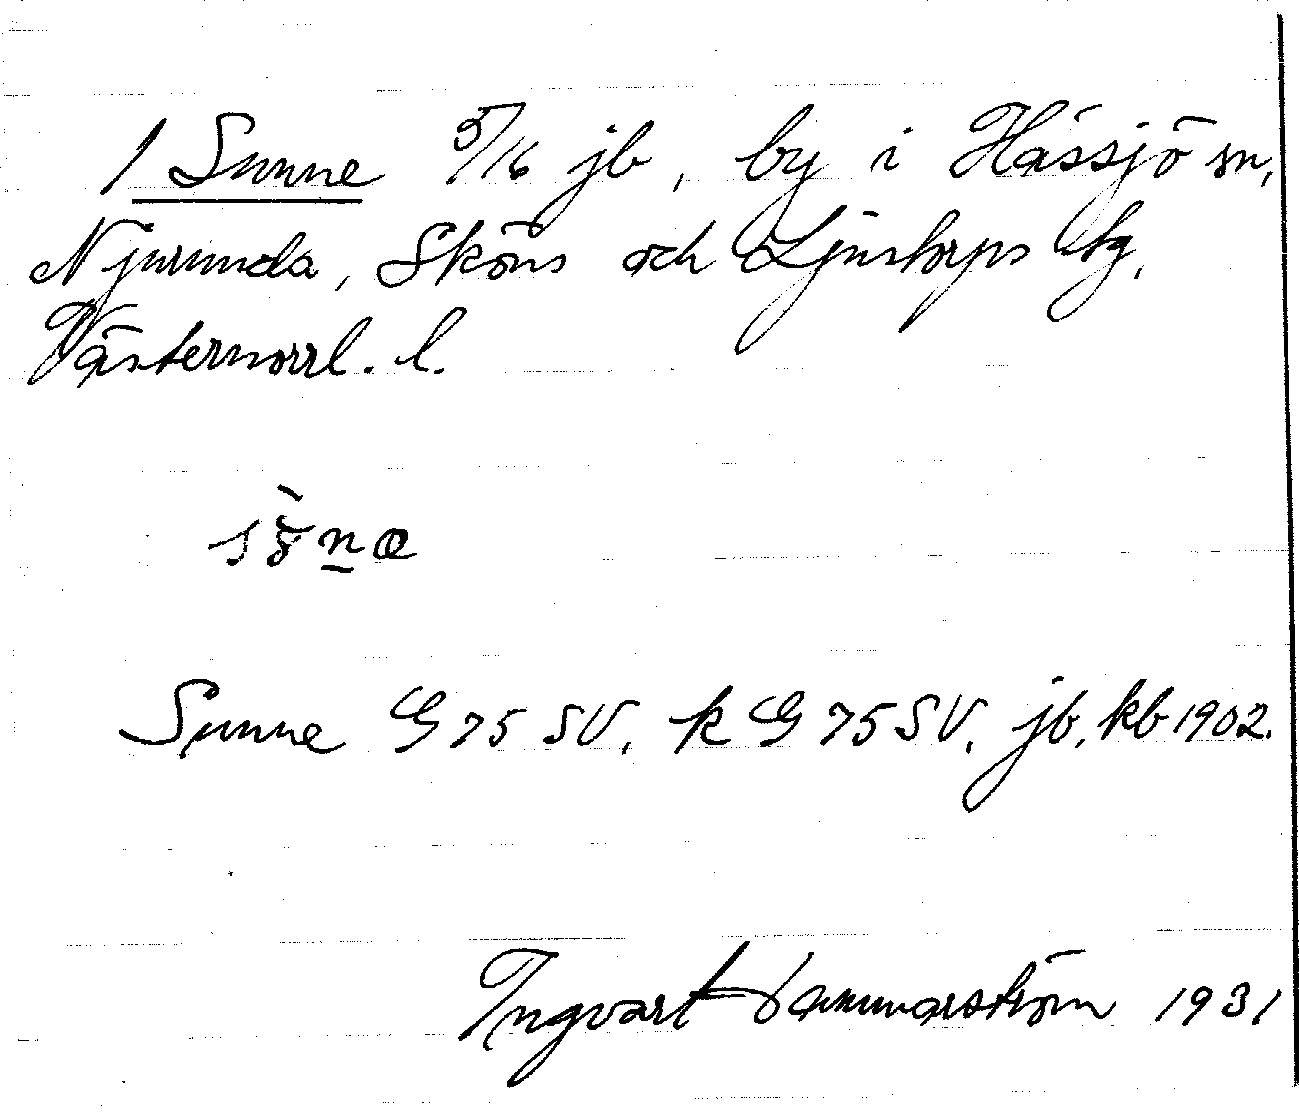 1 Sunne 5/16 jb, by i Hässjö sn,
Njurunda, Sköns och Ljustorps tg,
Västernorrl. l.
Sunne G 75 SV. k G 75 SV. jb, kb 1902.
Ingvart Hammarström 1931